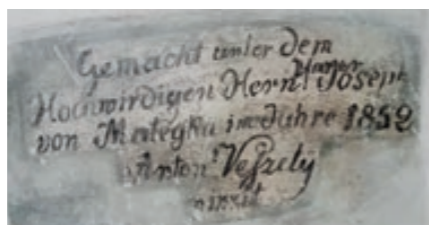 Gemacht unter dem
Hochwirdigen Hern! Joseph
von Mategka im Jahre 1852
Anton Veßzelÿ